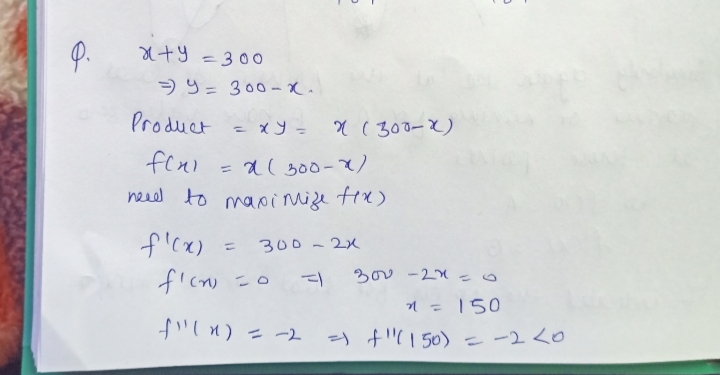 Q. x+y = 300
⇒ y = 300 - x.
Product = xy = x (300-x)
f(x) = x(300-x)
need to maximize f(x)
f'(x) = 300 - 2x
f'(x) = 0 ⇒ 300 - 2x = 0
x = 150
f''(x) = -2 ⇒ f''(150) = -2 < 0